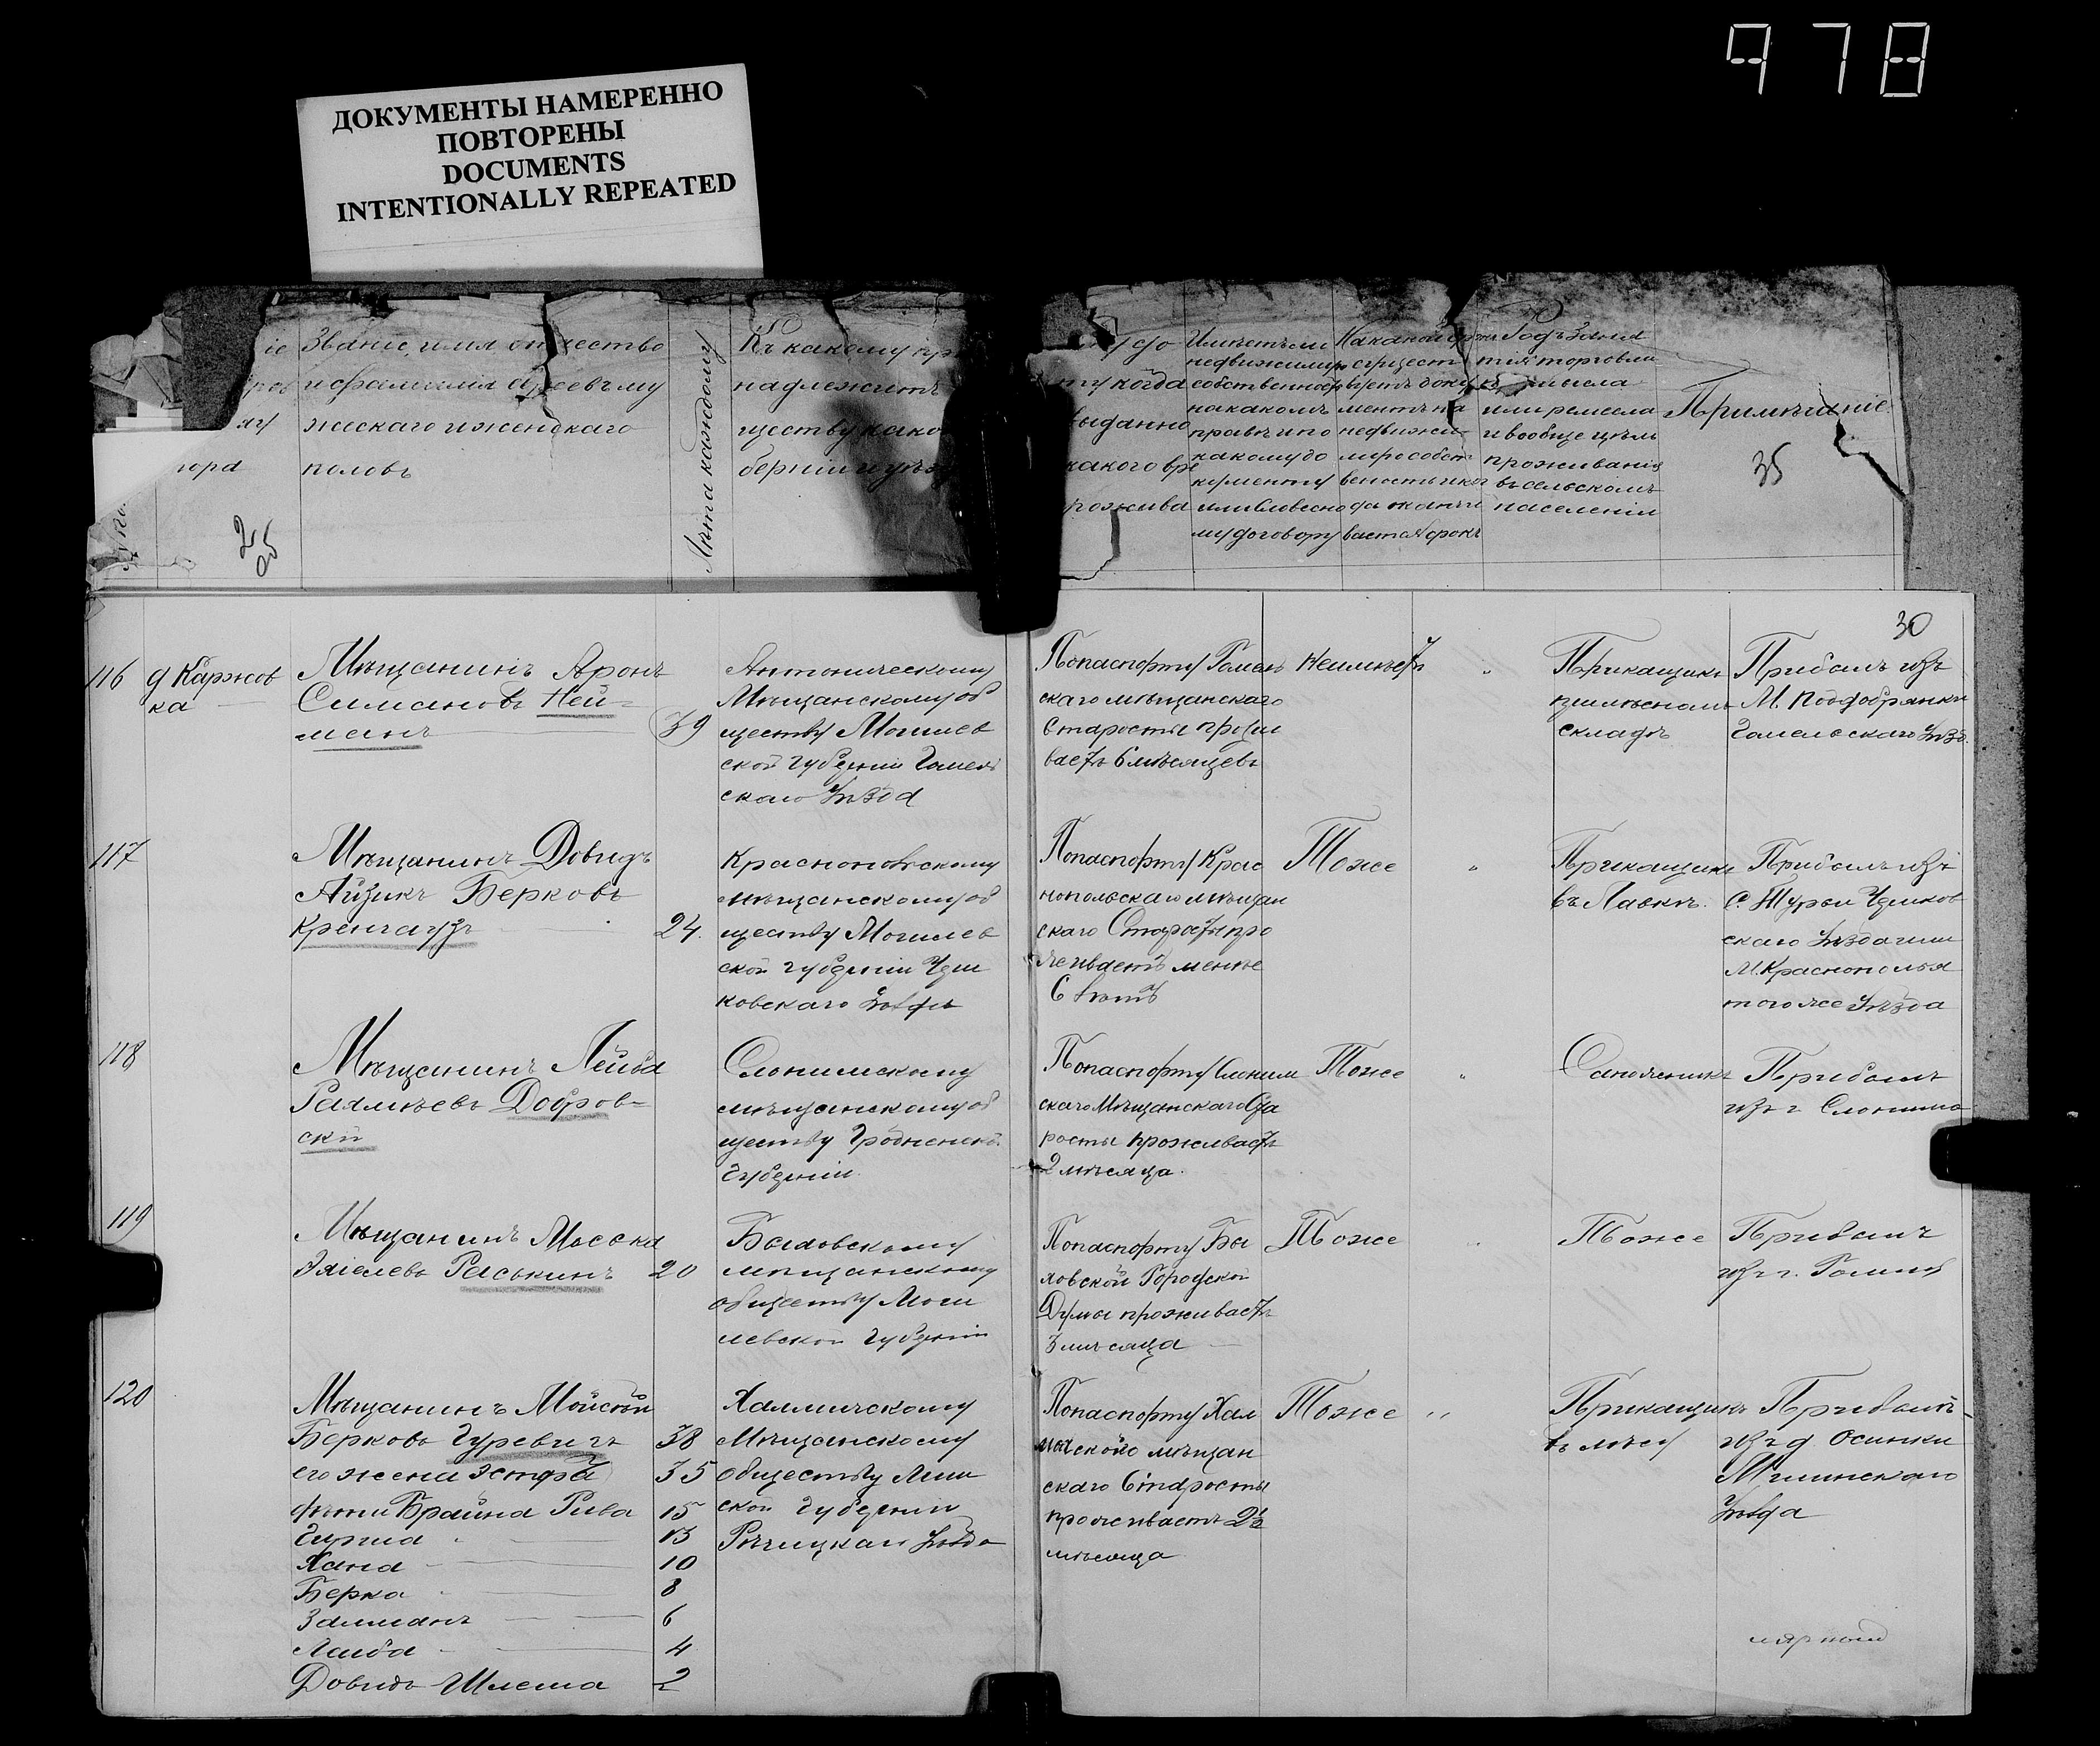 978
ДОКУМЕНТЫ НАМЕРЕННО
ПОВТОРЕНЫ
DOCUMENTS
INTENTIONALLY REPEATED
Званіе, имя отчество
и фамилія евреевъ му
жескаго и женскаго
половъ
Лѣта каждому
Къ какому пр
надлежитъ
ществу како
берніи и уѣзд
когда
выданно
какого вре
прожива
Имѣетъ ли
недвижимую
собственность
на какомъ
правѣ и по
какому до
кументу
или словесно
му договору
На какой
существ
вуетъ доку
ментъ на
недвижи
мую собст
венность и ког
да оканчи
вается срокъ
Родъ занятія
торговли
промысла
или ремесла
и вообще цѣль
проживанія
въ сельскомъ
населеніи
Примѣчаніе
35
25
30
116
д Каржов
ка
Мѣщанинъ Аронъ
Симановъ Ней=
манъ
39
Мѣщанскому об
ществу Могилев
ской Губерніи Гомель
скаго Уѣзда
По паспорту Гомель
скаго мѣщанскаго
Старосты прожи
ваетъ 6 мѣсяцевъ
Неимѣетъ
Прикащикъ
при лѣсномъ
складѣ
Прибылъ изъ
М. Поддобрянки
Гомельскаго Уѣзд.
117
Мѣщанинъ Довидъ
Айзикъ Берковъ
Кренгаузъ
24.
Краснопольскому
мѣщанскому об
ществу Могилев
ской губерніи Чери
ковскаго Уѣзда
По паспорту Крас
нопольскаго мѣщан
скаго Старосты про
живаетъ менѣе
6 лѣтъ
Тоже
Прикащикъ
въ Лавкѣ.
Прибылъ изъ
С. Турьи Чериков
скаго Уѣзда или
М. Краснополья
того же Уѣзда
118
Мѣщанинъ Лейба
Добров=
скій
Слонимскому
мѣщанскому об
ществу Гродненск.
Губерніи
По паспорту Слоним
скаго Мѣщанскаго Ста
росты проживаетъ
2 мѣсяца.
Тоже
Сапожникъ
Прибылъ
изъ г Слонима
119
Мѣщанинъ Мовска
Раськинъ 20
Быховскому
мѣщанскому
обществу Моги
левской Губерніи
По паспорту Бы
ховской Городской
Думы проживаетъ
3 мѣсяца
Тоже
Тоже
Прибылъ
изъ г.
120
Мѣщанинъ Мойсѣй
Берковъ Гуревичъ 38
его жена Эстфра 35
дѣти Брайна Рива 15
13
Хана 10
Берка 8
Залманъ 6
Лейба 4
Довидъ Шлема 2
Холмичскому
Мѣщанскому
обществу Мин
ской Губерніи
Рѣчицкаго Уѣзда
По паспорту Хол
мичскаго мѣщан
скаго Старосты
проживаетъ 2½
мѣсяца
Тоже
Прикащикъ
въ лѣсу
Прибылъ
изъ д Осинки
Мглинскаго
Уѣзда